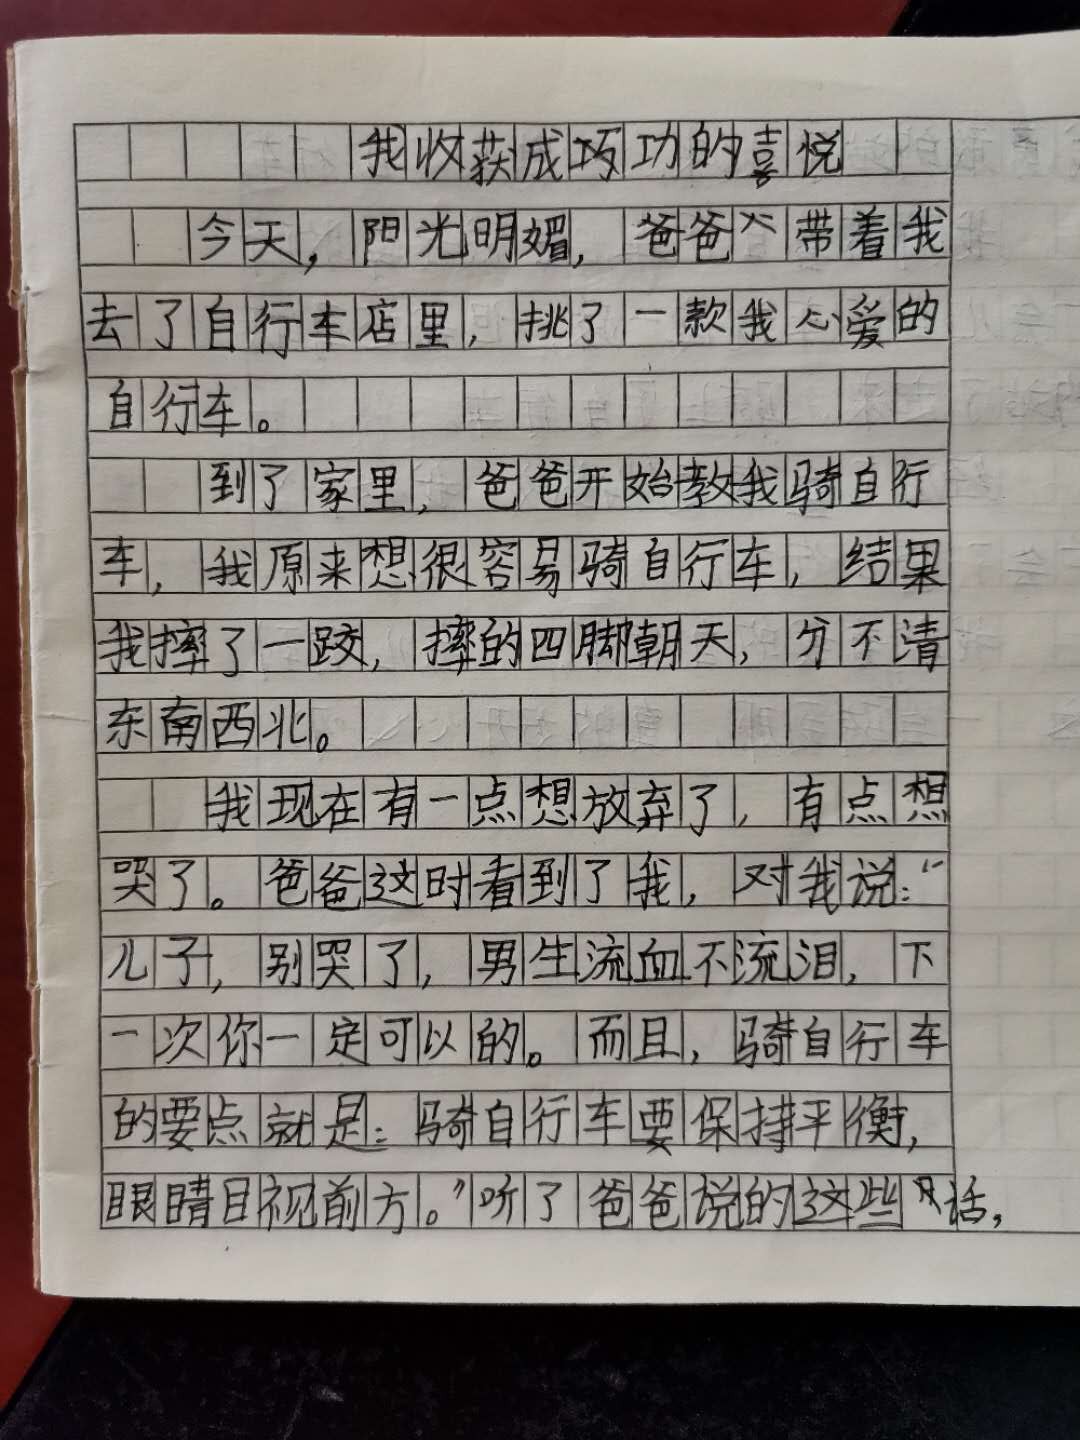 我收获成巧功的喜悦
今天，阳光明媚，爸爸带着我
去了自行车店里，挑了一款我心爱的
自行车。
到了家里，爸爸开始教我骑自行
车，我原来想很容易骑自行车，结果
我摔了一跤，摔的四脚朝天，分不清
东南西北。
我现在有一点想放弃了，有点想
哭了。爸爸这时看到了我，对我说：“
儿子，别哭了，男生流血不流泪，下
一次你一定可以的。而且，骑自行车
的要点就是：骑自行车要保持平衡，
眼睛目视前方。”听了爸爸说的这些话，